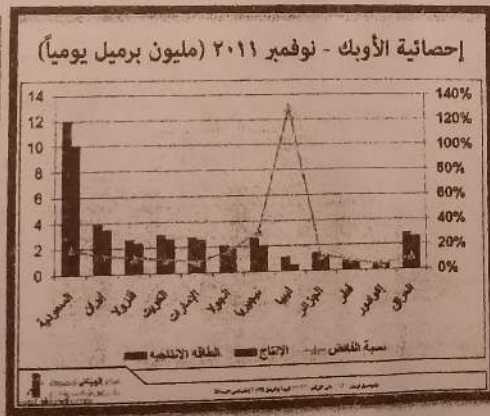 إحصائية الأوبك - نوفمبر ٢٠١١ (مليون برميل يومياً)
14
12
10
8
6
4
2
0
140%
120%
100%
80%
60%
40%
20%
0%
السعودية
إيران
فنزويلا
الكويت
الإمارات
أنجولا
نيجيريا
ليبيا
الجزائر
قطر
اكوادور
العراق
الطاقه الانتاجيه
الإنتاج
نسبة الفائض